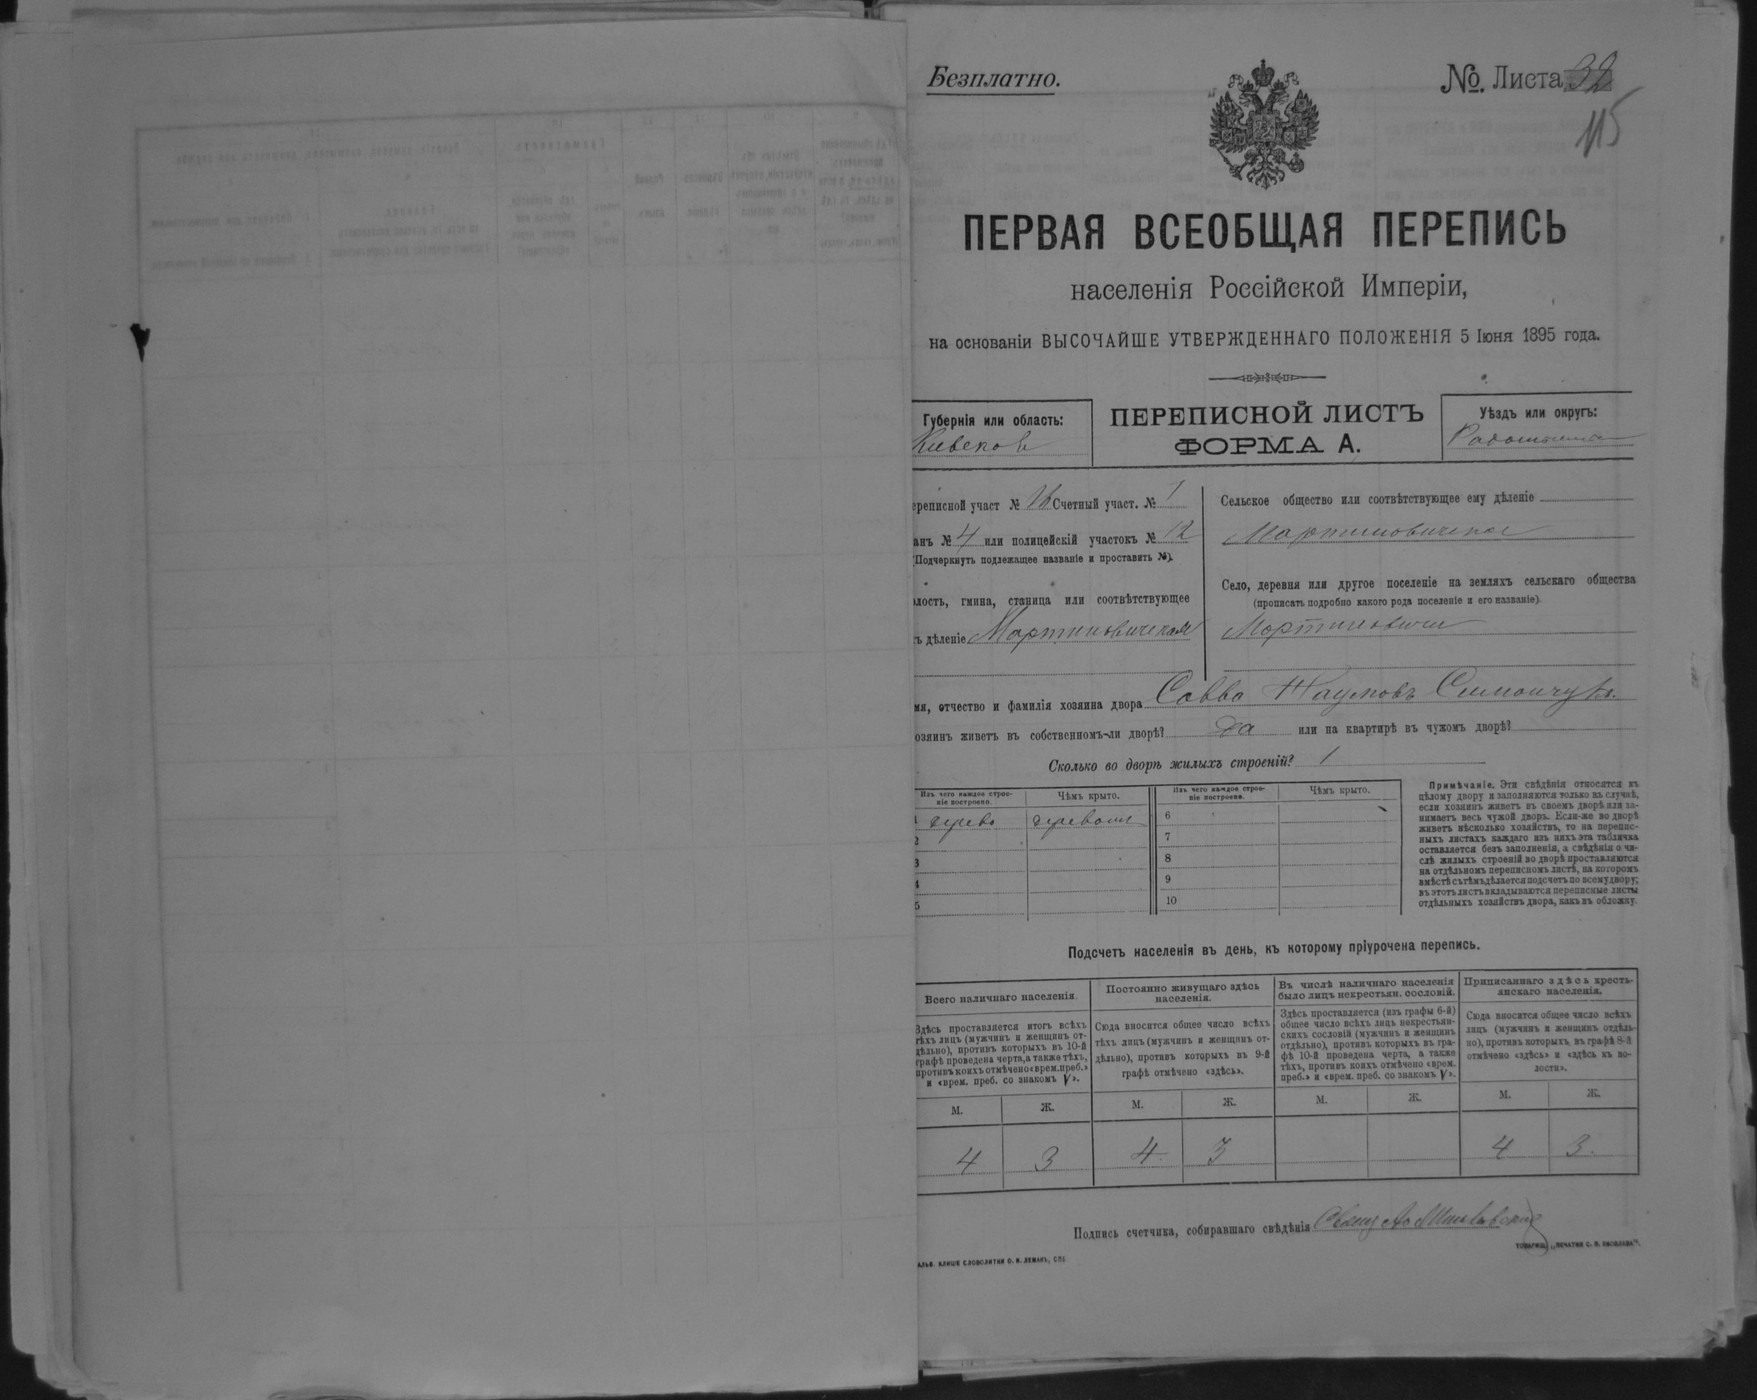 Безплатно.
№. Листа 32
115
ПЕРВАЯ ВСЕОБЩАЯ ПЕРЕПИСЬ
населенія Россійской Имперіи,
на основаніи ВЫСОЧАЙШЕ УТВЕРЖДЕННАГО ПОЛОЖЕНІЯ 5 Іюня 1895 года.
Губернія или область:
Кіевская
ПЕРЕПИСНОЙ ЛИСТЪ
ФОРМА А.
Уѣздъ или округъ:
ереписной участ № 16 Счетный участ. № 1
анъ № 4 или полицейскій участокъ № 12
(Подчеркнуть подлежащее названіе и проставить №).
лость, гмина, станица или соотвѣтствующее
ъ дѣленіе Мартиновичская
Сельское общество или соотвѣтствующее ему дѣленіе
Мартиновичское
Село, деревня или другое поселеніе на земляхъ сельскаго общества
(прописать подробно какого рода поселеніе и его названіе).
Мартиновичи
мя, отчество и фамилія хозяина двора Савва Наумовъ Симончукъ.
озяинъ живетъ въ собственномъ-ли дворѣ? да или на квартирѣ въ чужомъ дворѣ?
Сколько во дворѣ жилыхъ строеній? 1
Изъ чего каждое строе-
ніе построено.
Чѣмъ крыто.
Изъ чего каждое строе-
ніе построено.
Чѣмъ крыто.
1 дерево
6
2
7
3
8
4
9
5
10
Примѣчаніе. Эти свѣдѣнія относятся къ
цѣлому двору и заполняются только въ случаѣ,
если хозяинъ живетъ въ своемъ дворѣ или за-
нимаетъ весь чужой дворъ. Если-же во дворѣ
живетъ нѣсколько хозяйствъ, то на перепис-
ныхъ листахъ каждаго изъ нихъ эта табличка
оставляется безъ заполненія, а свѣдѣнія о чи-
слѣ жилыхъ строеній во дворѣ проставляются
на отдѣльномъ переписномъ листѣ, на которомъ
вмѣстѣ съ тѣмъ дѣлается подсчетъ по всему двору;
въ этотъ листъ вкладываются переписные листы
отдѣльныхъ хозяйствъ двора, какъ въ обложку.
Подсчетъ населенія въ день, къ которому пріурочена перепись.
Всего наличнаго населенія.
Здѣсь проставляется итогъ всѣхъ
тѣхъ лицъ (мужчинъ и женщинъ от-
дѣльно), противъ которыхъ въ 10-й
графѣ проведена черта, а также тѣхъ,
противъ коихъ отмѣчено «врем. преб.»
и «врем. преб. со знакомъ V».
Постоянно живущаго здѣсь
населенія.
Сюда вносится общее число всѣхъ
тѣхъ лицъ (мужчинъ и женщинъ от-
дѣльно), противъ которыхъ въ 9-й
графѣ отмѣчено «здѣсь».
Въ числѣ наличнаго населенія
было лицъ некрестьян. сословій.
Здѣсь проставляется (изъ графы 6-й)
общее число всѣхъ лицъ некрестьян-
скихъ сословій (мужчинъ и женщинъ
отдѣльно), противъ которыхъ въ гра-
фѣ 10-й проведена черта, а также
тѣхъ, противъ коихъ отмѣчено «врем.
преб.» и «врем. преб. со знакомъ V».
Приписаннаго здѣсь кресть-
янскаго населенія.
Сюда вносится общее число всѣхъ
лицъ (мужчинъ и женщинъ отдѣль-
но), противъ которыхъ въ графѣ 8-й
отмѣчено «здѣсь» и «здѣсь къ во-
лости».
М. Ж. М. Ж. М. Ж. М. Ж.
4 3 4 3 4 3
Подпись счетчика, собиравшаго свѣдѣнія
ТОВАРИЩ. „ПЕЧАТНЯ С. П. ЯКОВЛЕВА“.
КЛИШЕ СЛОВОЛИТНИ О. И. ЛЕМАНЪ, СПБ